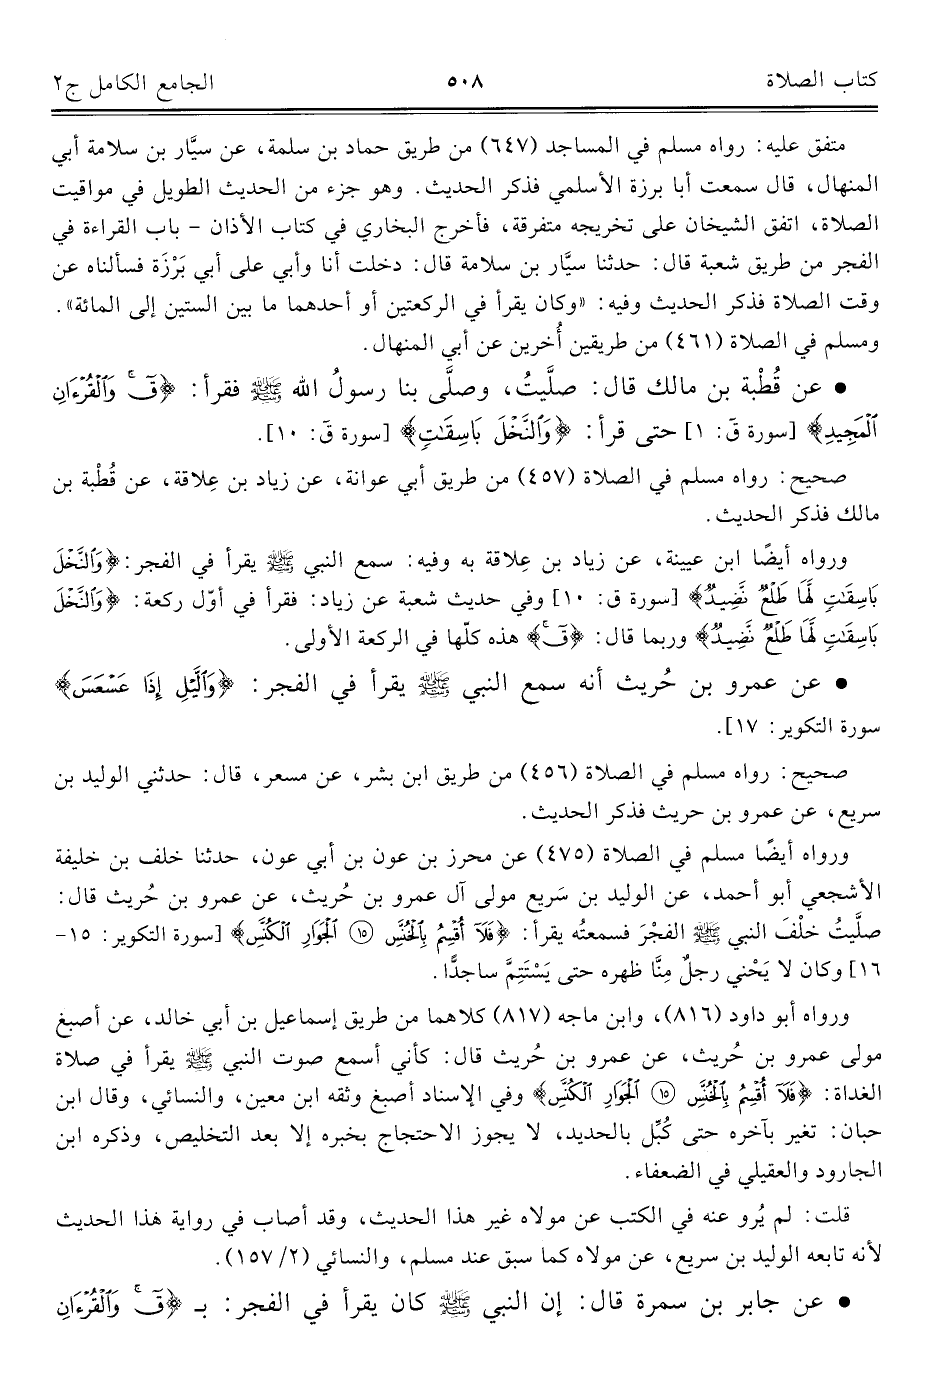 كتاب الصلاة ٥٠٨ الجامع الكامل ج٢
متفق عليه: رواه مسلم في المساجد (٦٤٧) من طريق حماد بن سلمة، عن سيَّار بن سلامة أبي
المنهال، قال سمعت أبا برزة الأسلمي فذكر الحديث. وهو جزء من الحديث الطويل في مواقيت
الصلاة، اتفق الشيخان على تخريجه متفرقة، فأخرج البخاري في كتاب الأذان - باب القراءة في
الفجر من طريق شعبة قال: حدثنا سيَّار بن سلامة قال: دخلت أنا وأبي على أبي بَرْزَة فسألناه عن
وقت الصلاة فذكر الحديث وفيه: «وكان يقرأ في الركعتين أو أحدهما ما بين الستين إلى المائة».
ومسلم في الصلاة (٤٦١) من طريقين أُخرين عن أبي المنهال.
• عن قُطْبة بن مالك قال: صلَّيتُ، وصلَّى بنا رسولُ الله ﷺ فقرأ: ﴿قٓۚ وَٱلۡقُرۡءَانِ
ٱلۡمَجِيدِ﴾ [سورة قٓ: ١] حتى قرأ: ﴿وَٱلنَّخۡلَ بَاسِقَٰتٖ﴾ [سورة قٓ: ١٠].
صحيح: رواه مسلم في الصلاة (٤٥٧) من طريق أبي عوانة، عن زياد بن عِلاقة، عن قُطْبة بن
مالك فذكر الحديث.
ورواه أيضًا ابن عيينة، عن زياد بن عِلاقة به وفيه: سمع النبي ﷺ يقرأ في الفجر: ﴿وَٱلنَّخۡلَ
بَاسِقَٰتٖ لَّهَا طَلۡعٞ نَّضِيدٞ﴾ [سورة ق: ١٠] وفي حديث شعبة عن زياد: فقرأ في أوّل ركعة: ﴿وَٱلنَّخۡلَ
بَاسِقَٰتٖ لَّهَا طَلۡعٞ نَّضِيدٞ﴾ وربما قال: ﴿قٓۚ﴾ هذه كلّها في الركعة الأولى.
• عن عمرو بن حُريث أنه سمع النبي ﷺ يقرأ في الفجر: ﴿وَٱلَّيۡلِ إِذَا عَسۡعَسَ﴾
سورة التكوير: ١٧].
صحيح: رواه مسلم في الصلاة (٤٥٦) من طريق ابن بشر، عن مسعر، قال: حدثني الوليد بن
سريع، عن عمرو بن حريث فذكر الحديث.
ورواه أيضًا مسلم في الصلاة (٤٧٥) عن محرز بن عون بن أبي عون، حدثنا خلف بن خليفة
الأشجعي أبو أحمد، عن الوليد بن سَريع مولى آل عمرو بن حُريث، عن عمرو بن حُريث قال:
صلَّيتُ خلْفَ النبي ﷺ الفجْرَ فسمعتُه يقرأ: ﴿فَلَآ أُقۡسِمُ بِٱلۡخُنَّسِ ١٥ ٱلۡجَوَارِ ٱلۡكُنَّسِ﴾ [سورة التكوير: ١٥-
١٦] وكان لا يَحْني رجلٌ مِنَّا ظهره حتى يَسْتَتِمَّ ساجدًّا.
ورواه أبو داود (٨١٦)، وابن ماجه (٨١٧) كلاهما من طريق إسماعيل بن أبي خالد، عن أصبغ
مولى عمرو بن حُريث، عن عمرو بن حُريث قال: كأني أسمع صوت النبي ﷺ يقرأ في صلاة
الغداة: ﴿فَلَآ أُقۡسِمُ بِٱلۡخُنَّسِ ١٥ ٱلۡجَوَارِ ٱلۡكُنَّسِ﴾ وفي الإسناد أصبغ وثقه ابن معين، والنسائي، وقال ابن
حبان: تغير بآخره حتى كُبِّل بالحديد، لا يجوز الاحتجاج بخبره إلا بعد التخليص، وذكره ابن
الجارود والعقيلي في الضعفاء.
قلت: لم يُرو عنه في الكتب عن مولاه غير هذا الحديث، وقد أصاب في رواية هذا الحديث
لأنه تابعه الوليد بن سريع، عن مولاه كما سبق عند مسلم، والنسائي (٢/ ١٥٧).
• عن جابر بن سمرة قال: إن النبي ﷺ كان يقرأ في الفجر: بـ ﴿قٓۚ وَٱلۡقُرۡءَانِ